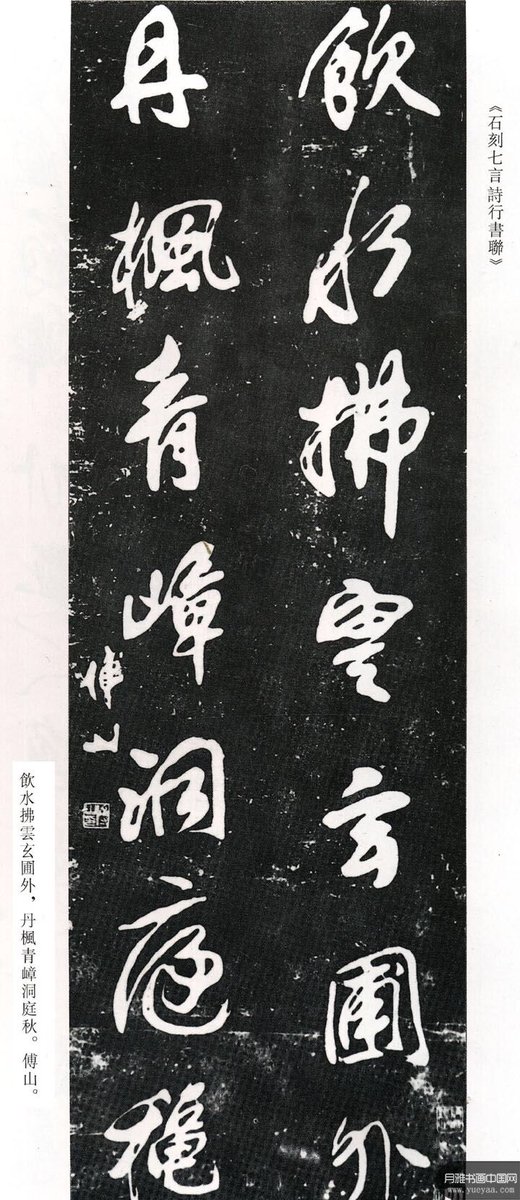 《石刻七言詩行書聯》
飲水拂雲玄圃外
丹楓青嶂洞庭秋
傅山
飲水拂雲玄圃外，丹楓青嶂洞庭秋。傅山。
月雅书画中国网
www.yueyaa.com